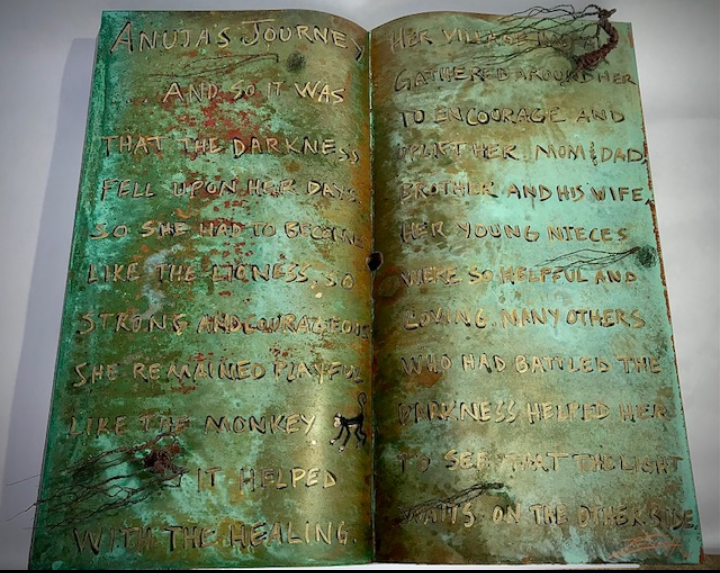 ANUJA'S JOURNEY
... AND SO IT WAS
THAT THE DARKNESS
FELL UPON HER DAYS.
SO SHE HAD TO BECOME
LIKE THE LIONESS, SO
STRONG AND COURAGEOUS
SHE REMAINED PLAYFUL
LIKE THE MONKEY
IT HELPED
WITH THE HEALING.
HER VILLAGE
GATHERED AROUND HER
TO ENCOURAGE AND
UPLIFT HER. MOM & DAD,
BROTHER AND HIS WIFE,
HER YOUNG NIECES
WERE SO HELPFUL AND
LOVING. MANY OTHERS
WHO HAD BATTLED THE
DARKNESS HELPED HER
TO SEE THAT THE LIGHT
WAITS ON THE OTHER SIDE.